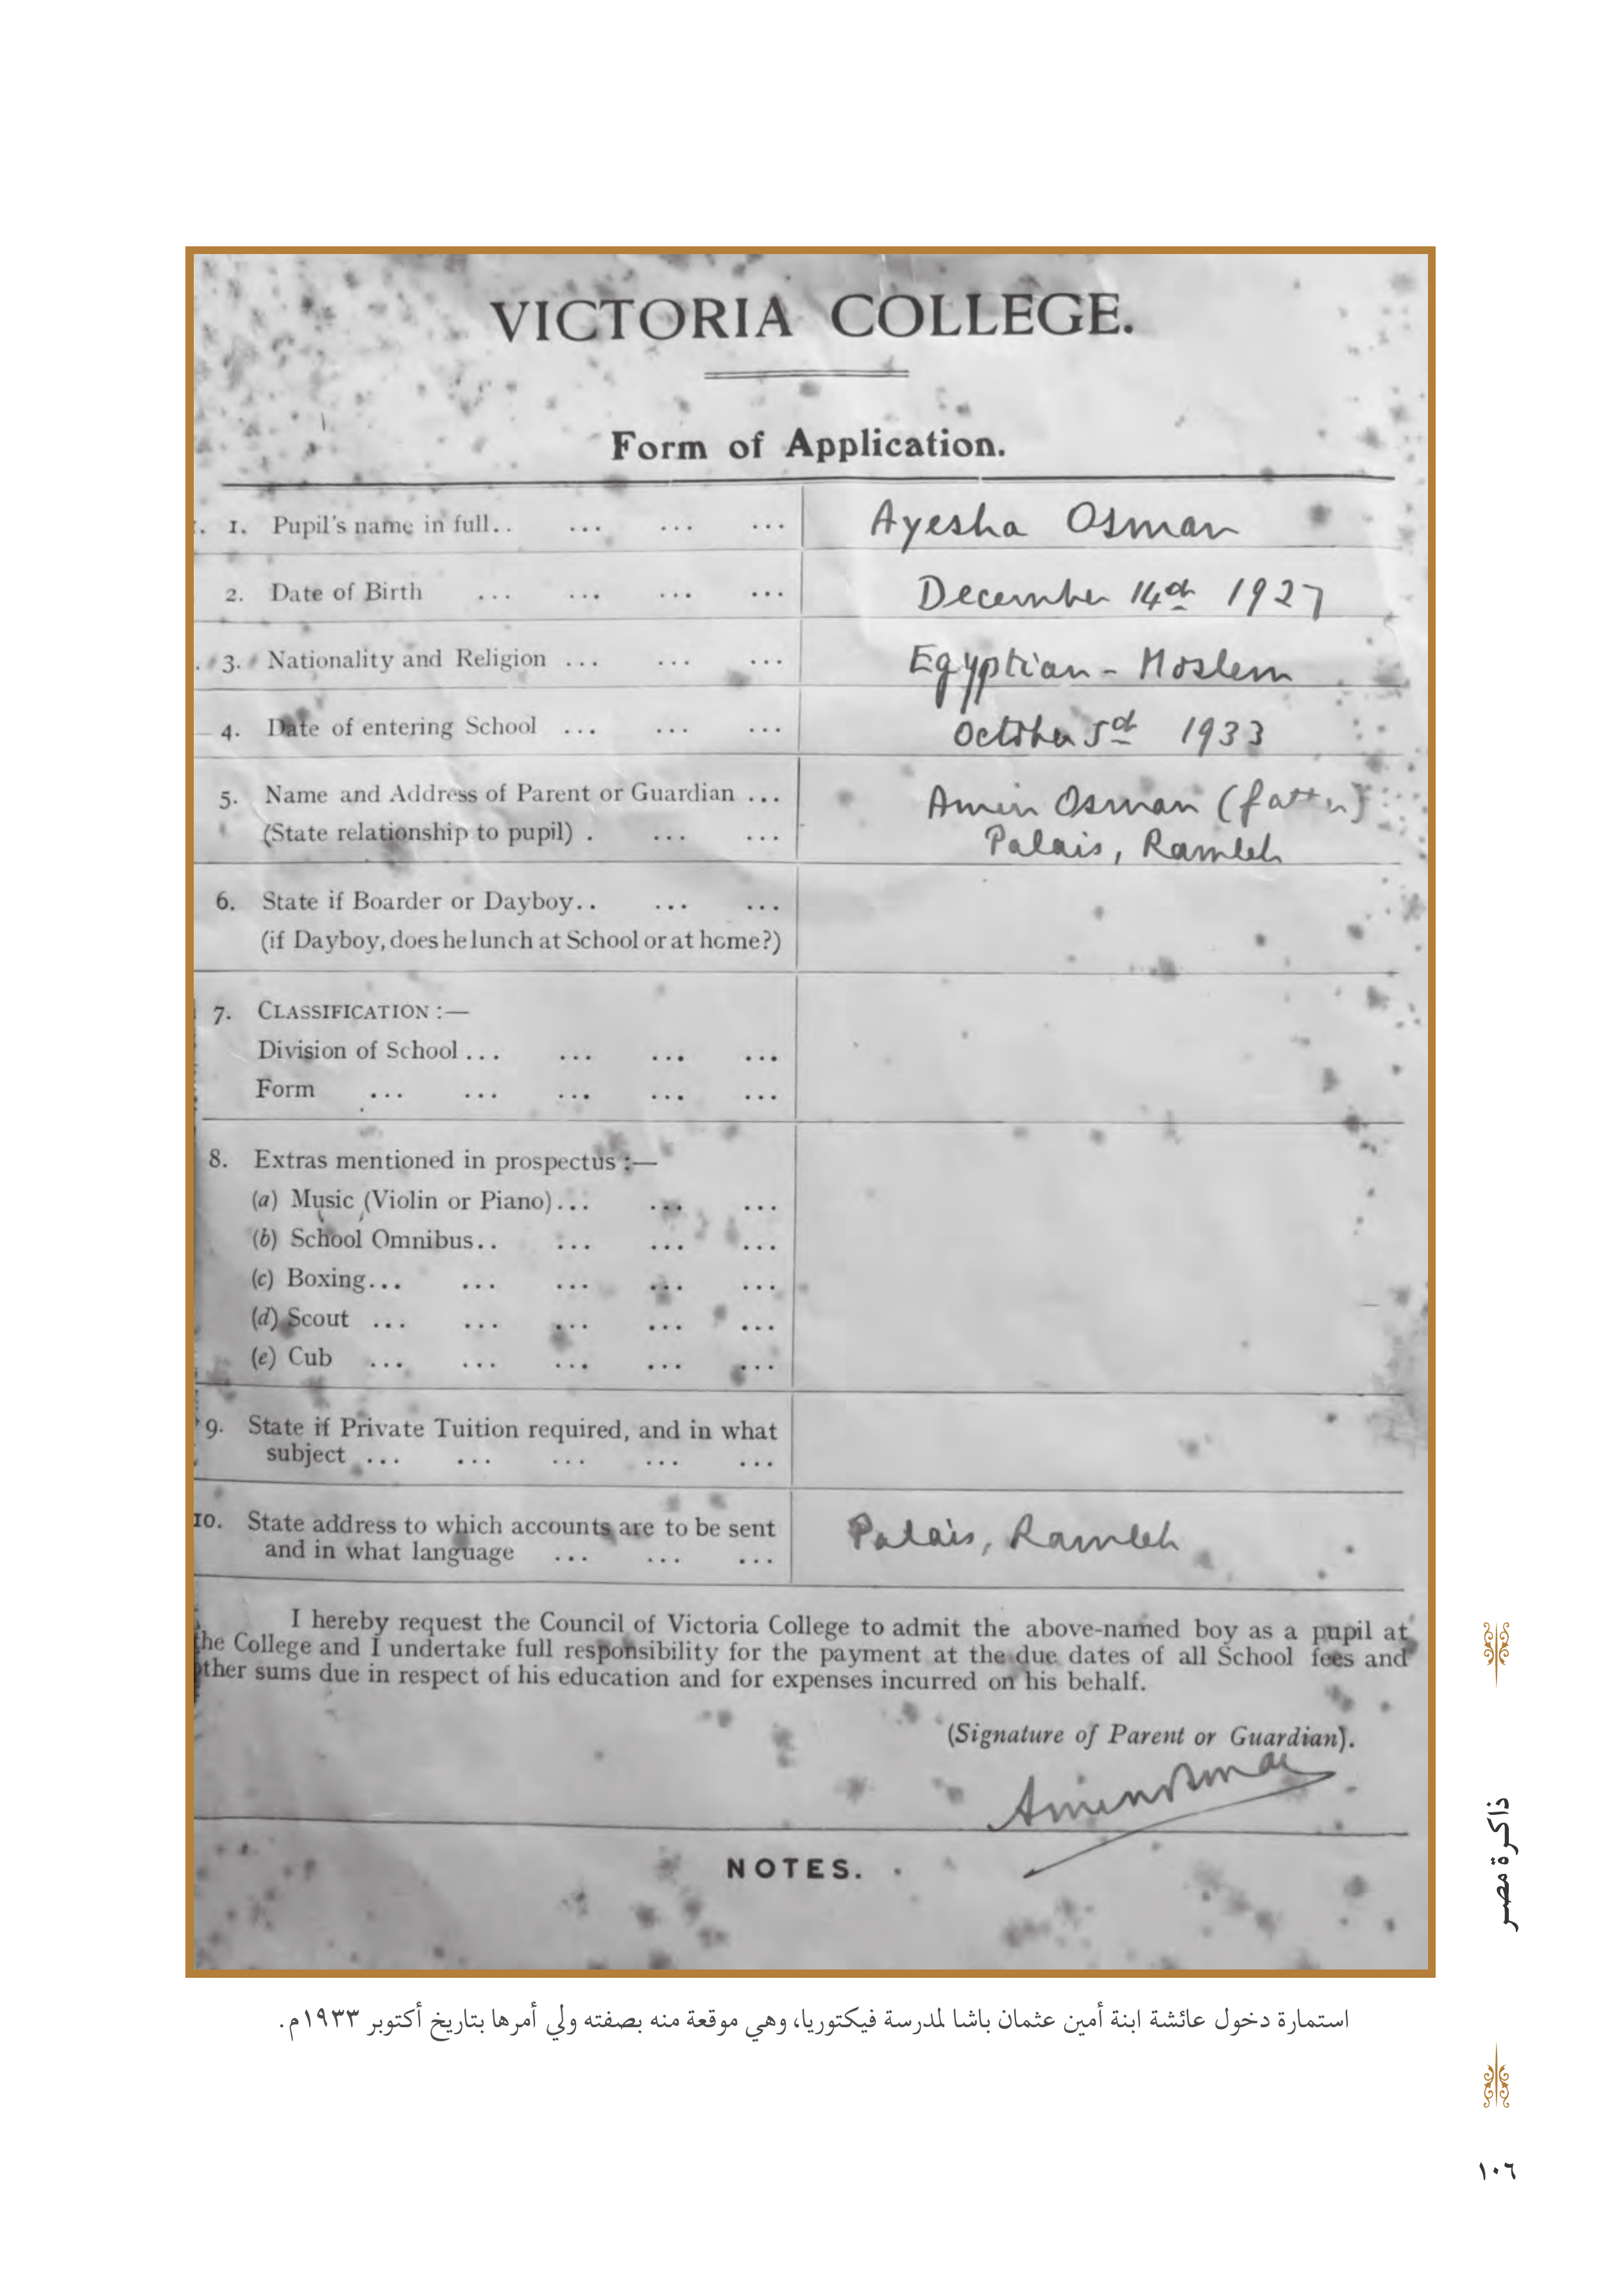 VICTORIA COLLEGE.
Form of Application.
1. Pupil's name in full.. ... ... ... Ayesha Osman
2. Date of Birth ... ... ... ... December 14th 1927
3. Nationality and Religion ... ... ... Egyptian - Moslem
4. Date of entering School ... ... ... October 5th 1933
5. Name and Address of Parent or Guardian ... Amin Osman (father)
(State relationship to pupil) . ... ... Palais, Ramleh
6. State if Boarder or Dayboy.. ... ...
(if Dayboy, does he lunch at School or at home?)
7. CLASSIFICATION :—
Division of School ... ... ... ...
Form ... ... ... ... ...
8. Extras mentioned in prospectus :—
(a) Music (Violin or Piano) ... ... ...
(b) School Omnibus.. ... ... ...
(c) Boxing... ... ... ... ...
(d) Scout ... ... ... ... ...
(e) Cub ... ... ... ... ...
9. State if Private Tuition required, and in what
subject ... ... ... ... ...
10. State address to which accounts are to be sent Palais, Ramleh
and in what language ... ... ...
I hereby request the Council of Victoria College to admit the above-named boy as a pupil at
the College and I undertake full responsibility for the payment at the due dates of all School fees and
other sums due in respect of his education and for expenses incurred on his behalf.
(Signature of Parent or Guardian).
Amin Osman
NOTES.
استمارة دخول عائشة ابنة أمين عثمان باشا لمدرسة فيكتوريا، وهي موقعة منه بصفته ولي أمرها بتاريخ أكتوبر ١٩٣٣م.
ذاكرة مصر
١٠٦